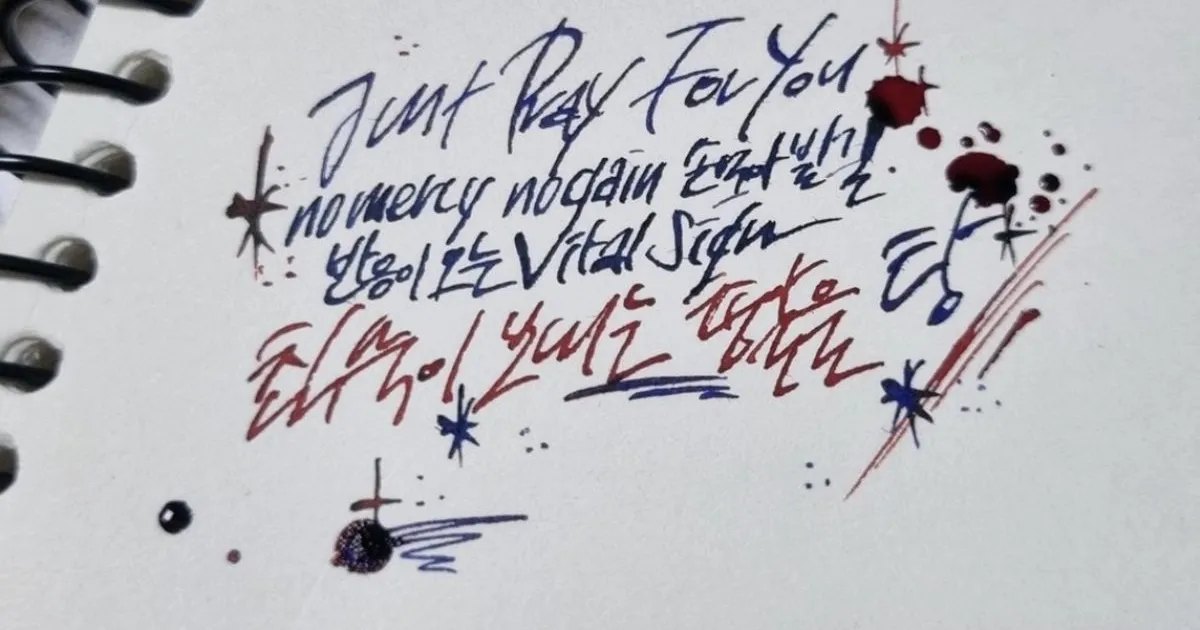 Just Pray For You
no mercy no gain 손모아 발길
반응이 오는 Vital Sign
침묵이 보내는 평안은
탕